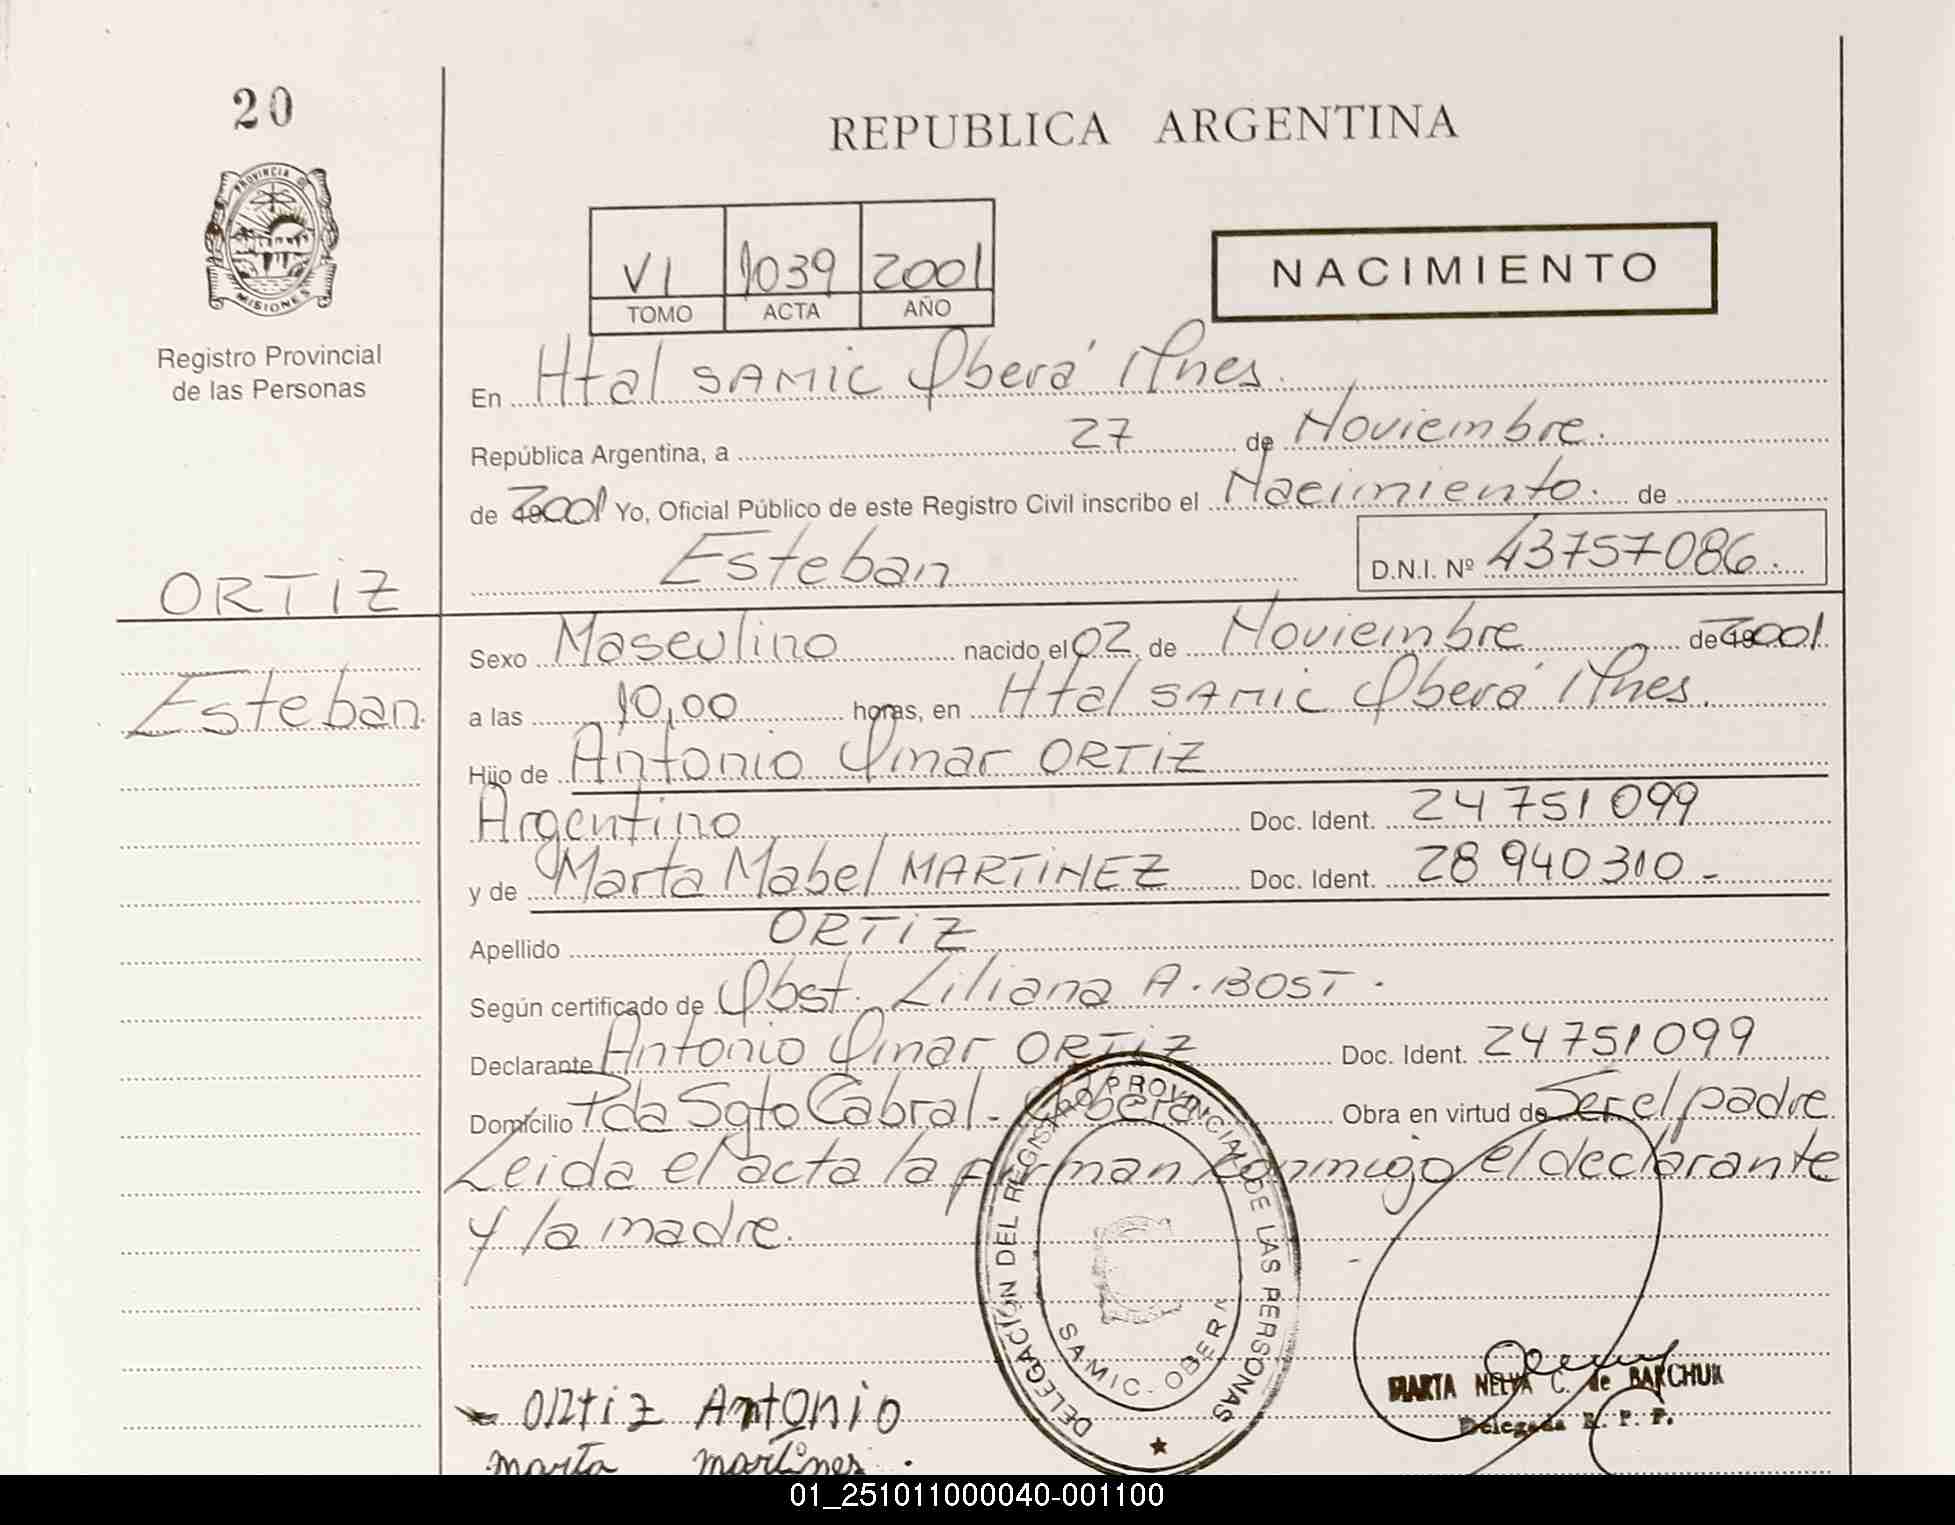 20
PROVINCIA DE
MISIONES
Registro Provincial
de las Personas
REPUBLICA ARGENTINA
VI 1039 2001
TOMO ACTA AÑO
NACIMIENTO
En Htal SAMIC Oberá Mnes.
República Argentina, a 27 de Noviembre.
de 2001 Yo, Oficial Público de este Registro Civil inscribo el Nacimiento. de
Esteban D.N.I. Nº 43757086.
ORTIZ
Esteban.
Sexo Masculino nacido el 02 de Noviembre de 2001.
a las 10,00 horas, en Htal SAMIC Oberá Mnes.
Hijo de Antonio Omar ORTIZ
Argentino Doc. Ident. 24751099
y de Marta Mabel MARTINEZ Doc. Ident. 28 940310 -
Apellido ORTIZ
Según certificado de Obst. Liliana A. BOST.
Declarante Antonio Omar ORTIZ Doc. Ident. 24751099
Domicilio Pda Sgto Cabral - Oberá. Obra en virtud de Ser el padre
Leida el acta la firman conmigo el declarante
y la madre.
DELEGACIÓN DEL REGISTRO PROVINCIAL DE LAS PERSONAS
SAMIC - OBERA
MARTA NELVA C. de BARCHUK
Delegada R. P. P.
ORTIZ ANTONIO
marta martines.
01_251011000040-001100